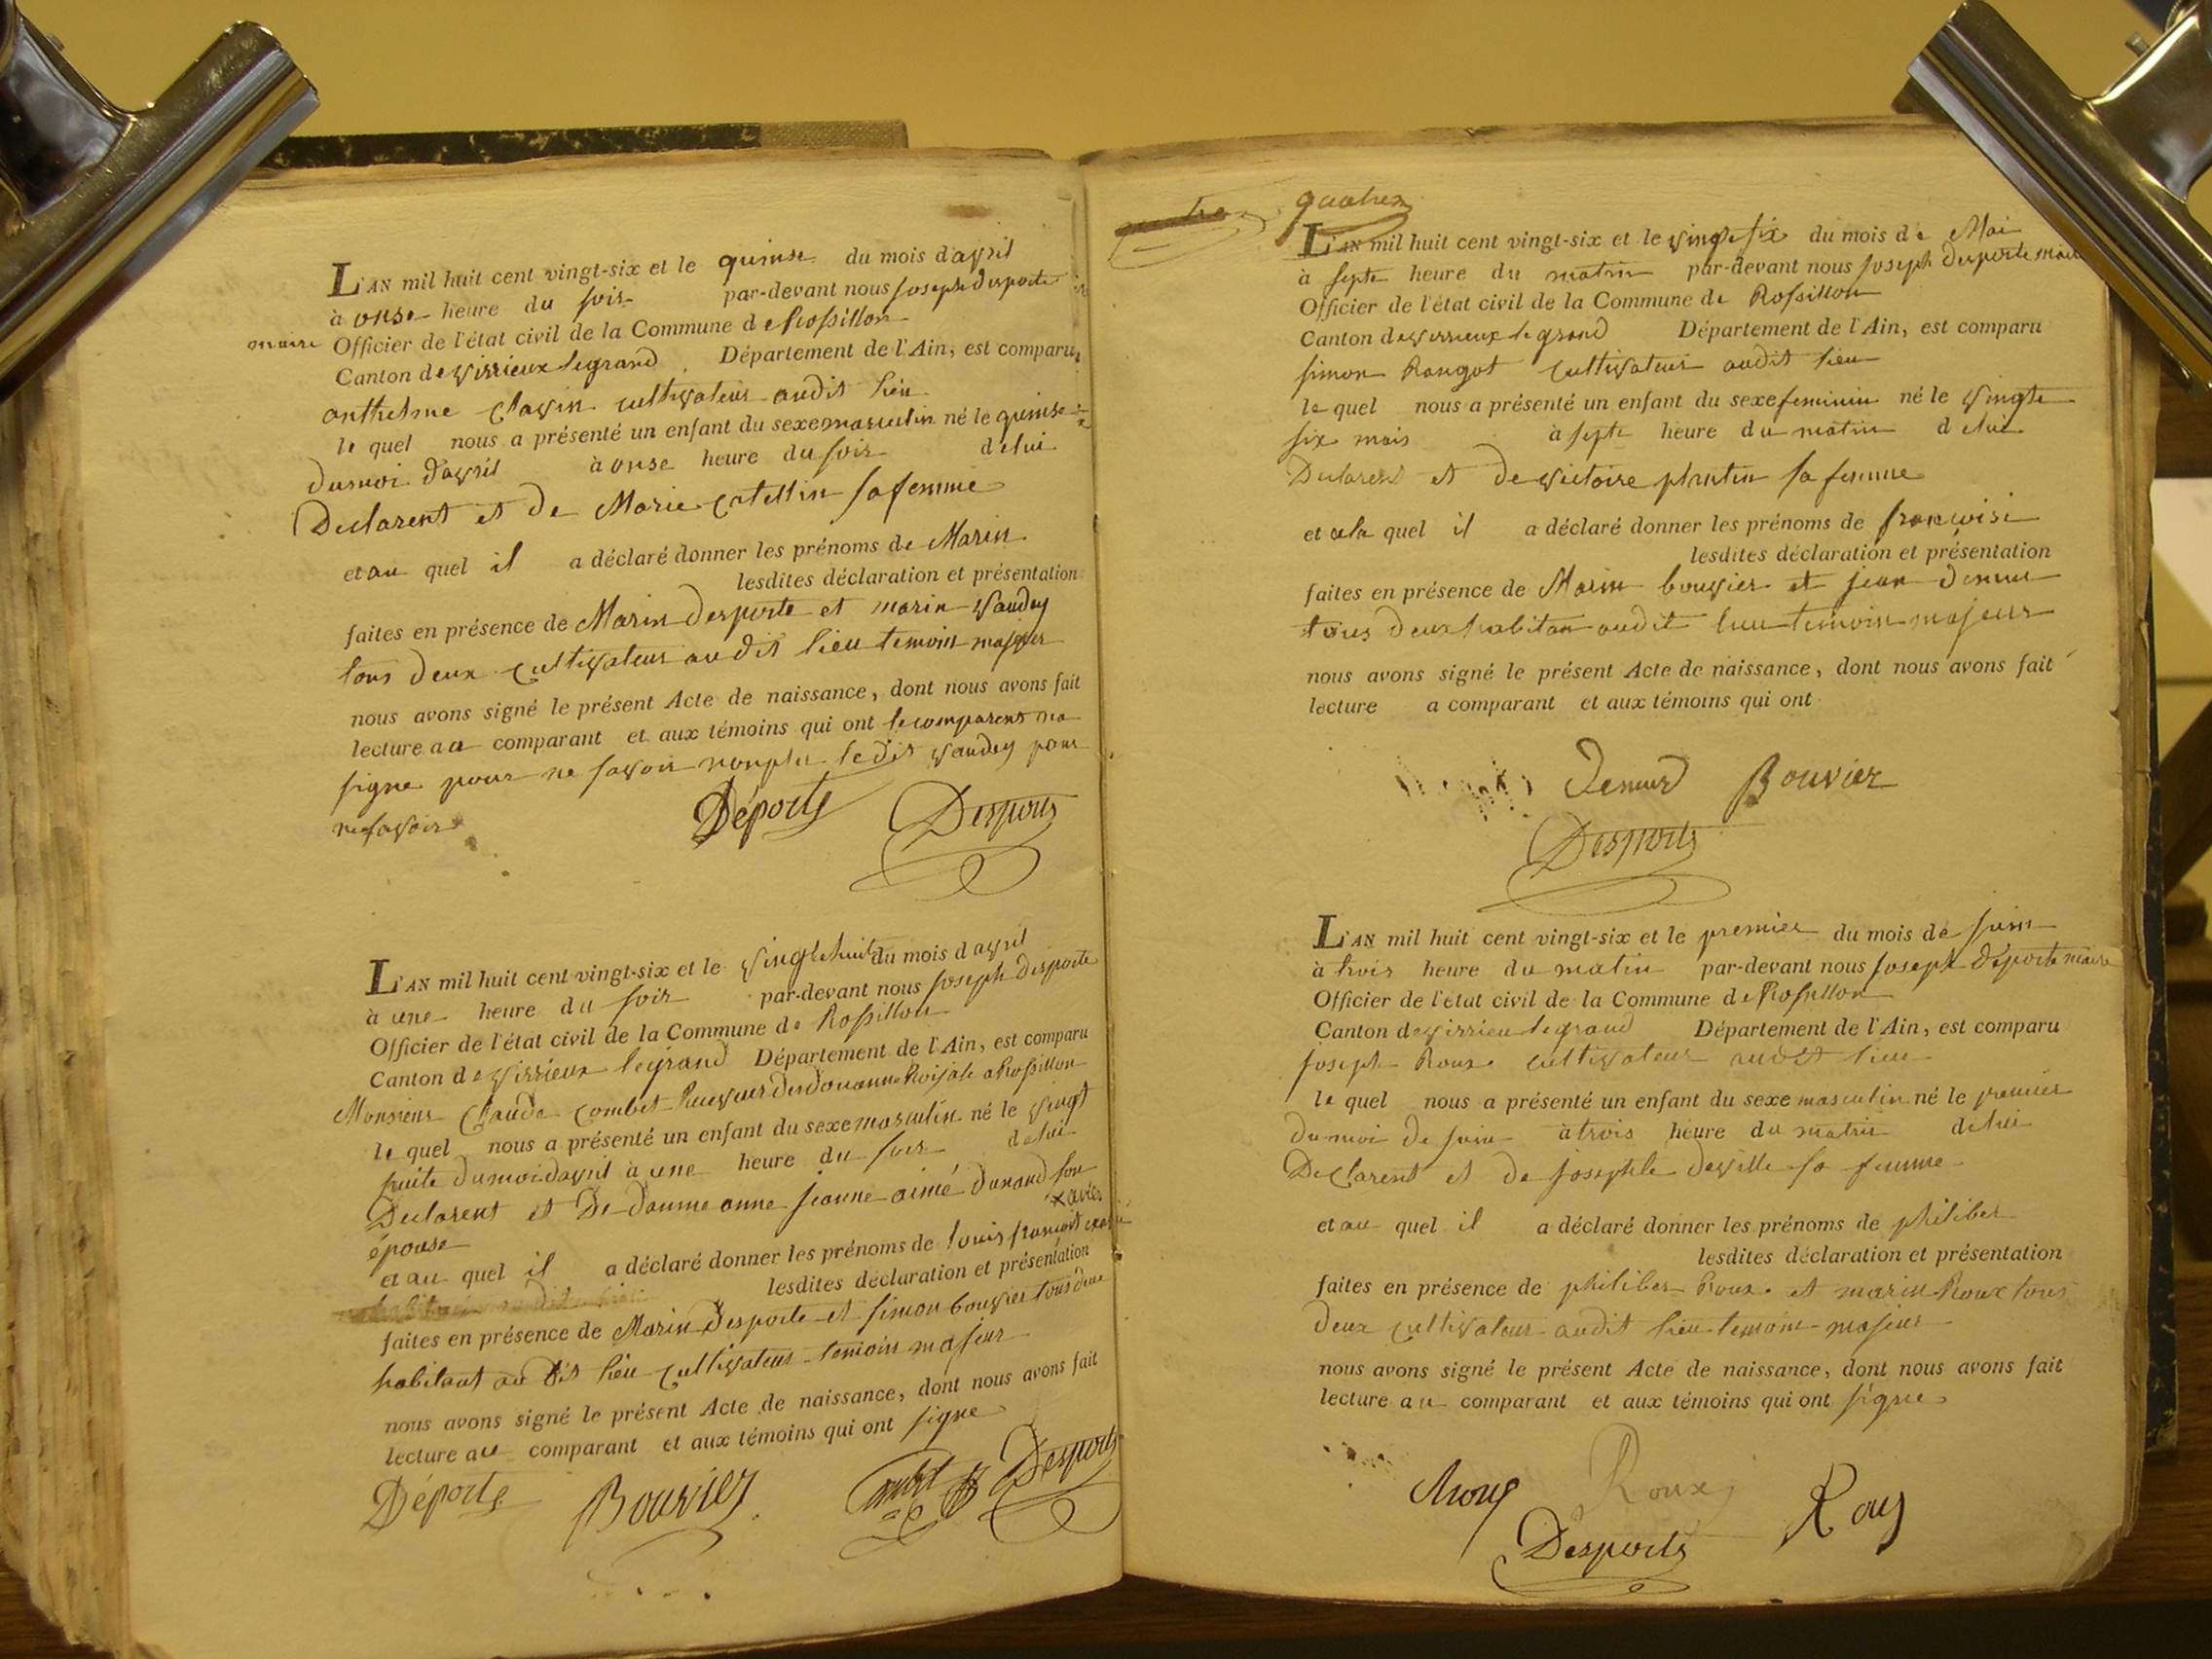 L'AN mil huit cent vingt-six et le quinse du mois d'avril
à onse heure du soir par-devant nous joseph desporte
maire Officier de l'état civil de la Commune de Rossillon
Canton de virrieux legrand Département de l'Ain, est comparu
anthelme clavin cultivateur audit lieu
le quel nous a présenté un enfant du sexe masculin né le quinse
du moi d'avril à onse heure du soir de lui
Declarent et de Marie catellin sa femme
et au quel il a déclaré donner les prénoms de Marin
lesdites déclaration et présentation
faites en présence de Marin desporte et marin vaudey
tous deux cultivateur au dit lieu temoin majeur
nous avons signé le présent Acte de naissance, dont nous avons fait
lecture au comparant et aux témoins qui ont le comparent na
signe pour ne savoir non plu le dit vaudey pour
ne savoir
Déporte Desporte
L'AN mil huit cent vingt-six et le vingt huit du mois d avril
à une heure du soir par-devant nous joseph desporte
Officier de l'état civil de la Commune de Rossillon
Canton de virrieux legrand Département de l'Ain, est comparu
Monsieur Claude combet Recuveur des douanne Roijale a Rossillon
le quel nous a présenté un enfant du sexe masculin né le vingt
huite du moi davril à une heure du soir de lui
Declarent et De damme anne jeanne aimé dunand son
épouse
xavier
et au quel il a déclaré donner les prénoms de louis francoit
lesdites déclaration et présentation
faites en présence de Marin Desporte et simon bouvier tous deux
habitant au dit lieu cultivateur temoin majeur
nous avons signé le présent Acte de naissance, dont nous avons fait
lecture au comparant et aux témoins qui ont signe
Déporte Bouvier Combet Desporte
quatre
L'AN mil huit cent vingt-six et le vingt six du mois de Mai
à septe heure du matin par-devant nous joseph desporte maire
Officier de l'état civil de la Commune de Rossillon
Canton de virrieux le grand Département de l'Ain, est comparu
simon Rangot cultivateur audit lieu
le quel nous a présenté un enfant du sexe feminin né le vingte
six mais à septe heure du matin de lui
Declarent et de victoire plantin sa femme
et a la quel il a déclaré donner les prénoms de francoise
lesdites déclaration et présentation
faites en présence de Marin bouvier et jean demur
tous deux habitan audit lieu temoin majeur
nous avons signé le présent Acte de naissance, dont nous avons fait
lecture a comparant et aux témoins qui ont
Demur Bouvier
Desporte
L'AN mil huit cent vingt-six et le premier du mois de juin
à trois heure du matin par-devant nous joseph déporte maire
Officier de l'état civil de la Commune de Rossillon
Canton de virrieu legrand Département de l'Ain, est comparu
joseph Roux cultivateur audit lieu
le quel nous a présenté un enfant du sexe masculin né le premier
du moi de juin à trois heure du matin de lui
Declarent et de josephte deville sa femme
et au quel il a déclaré donner les prénoms de philiber
lesdites déclaration et présentation
faites en présence de philiber Roux et marin Roux tous
deux cultivateur audit lieu temoin majeur
nous avons signé le présent Acte de naissance, dont nous avons fait
lecture au comparant et aux témoins qui ont signe
Roux
Desporte